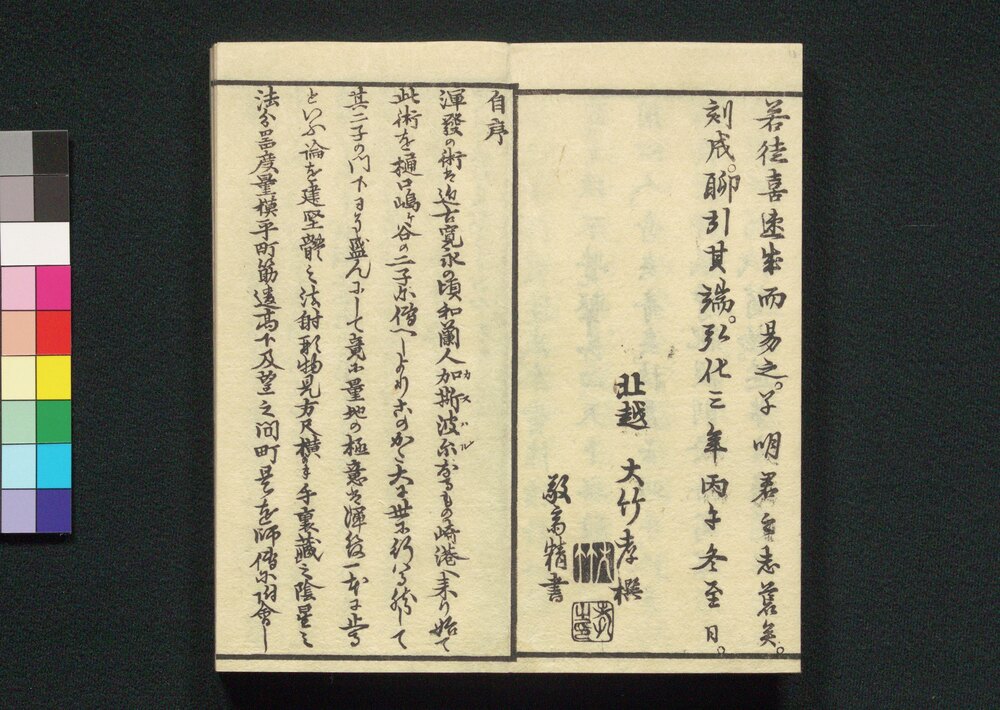 若徒喜速成而易之。子明君之志荒矣。
刻成。聊引其端。弘化三年丙午冬至日。
北越 大竹孝撰
敬斎精書
自序
渾發の術は近古寛永の頃和蘭人加斯波尓なるもの崎港へ来り始て
カスパル
此術を樋口嶋谷の二子に傳へしより
大に世に行はる然して
其二子の門下に至り盛んにして竟に量地の極意は渾發一本に止る
といふ論を建堅艪之法射形物見方尺横手手裏蔵之陰星之
法分器度量模平町筋違高下及望之間町見を師傳に附會し